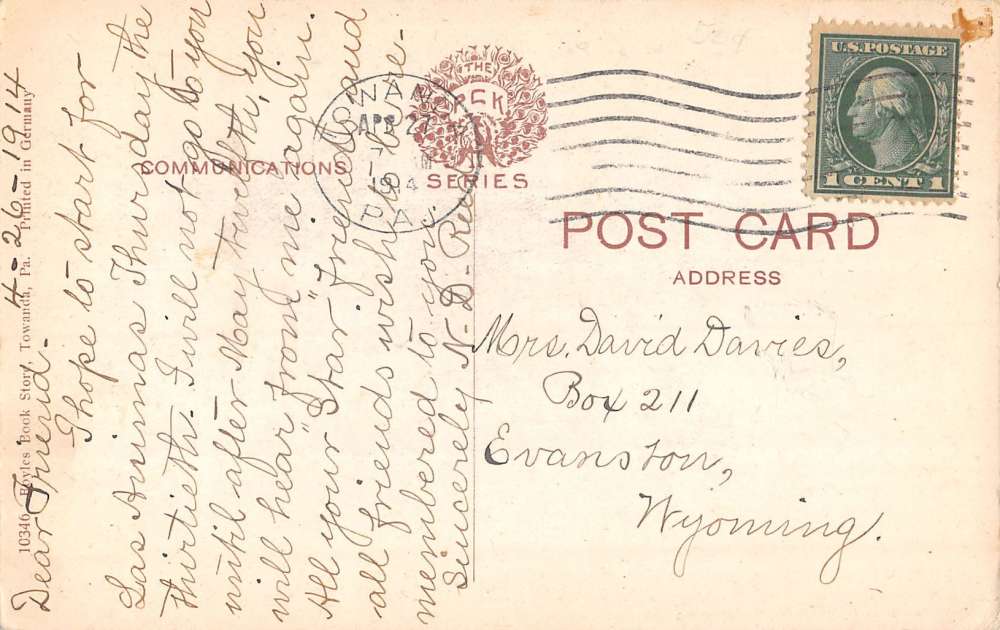 4-26-1914
Dear Friend.
I hope to start for
Las Animas Thursday the
thirtieth. I will not go to you
until after May twelfth, you
will hear "from" me again.
All your "Star" friends and
all friends wish to be re-
membered to you.
Sincerely N. D.
10346 Boyles Book Store, Towanda, Pa. Printed in Germany
COMMUNICATIONS
THE
PCK
SERIES
APR 27
1914
PA.
U.S. POSTAGE
1 CENT 1
POST CARD
ADDRESS
Mrs. David Davies,
Box 211
Evanston,
Wyoming.